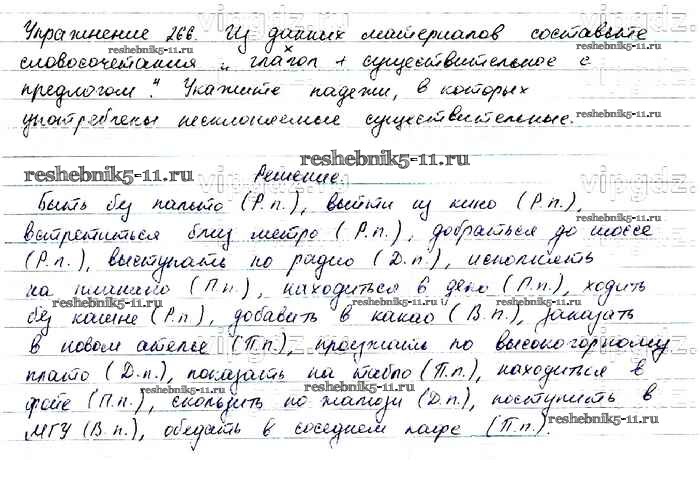 Упражнение 266. Из данных материалов составьте
словосочетания „глагол + существительное с
предлогом". Укажите падежи, в которых
употреблены несклоняемые существительные.
Решение.
Быть без пальто (Р.п.), выйти из кино (Р.п.),
встретиться близ метро (Р.п.), добраться до шоссе
(Р.п.), выступать по радио (Д.п.), исполнять
на пианино (П.п.), находиться в депо (П.п.), ходить
без кашне (Р.п.), добавить в какао (В.п.), заказать
в новом ателье (П.п.), проезжать по высокогорному
плато (Д.п.), показать на табло (П.п.), находиться в
фойе (П.п.), скользить по жалюзи (Д.п.), поступить в
МГУ (В.п.), обедать в соседнем кафе (П.п.).
reshebnik5-11.ru
vipgdz.